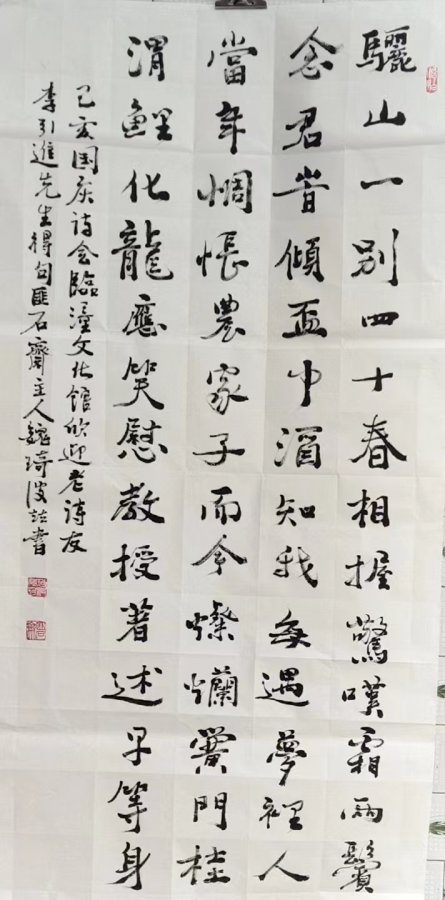 驪山一别四十春相握驚嘆霜兩鬢
念君昔傾盃中酒知我每遇夢裡人
當年惆悵農家子而今燦爛黌門柱
渭鯉化龍應笑慰教授著述早等身
己亥国庆诗会臨潼文化館欣迎老诗友
李引進先生得句匪石齋主人魏琦波並書